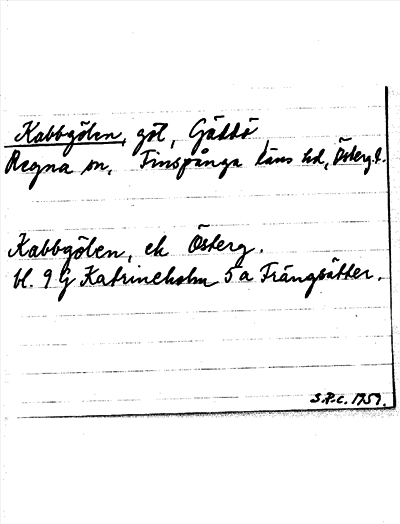 Kabbgölen, göl, Gättö,
Regna sn, Finspånga läns hd, Österg. l.
Kabbgölen, ek Österg.
bl. 9 G Katrineholm 5 a Trängsätter.
S.P.C. 1959.